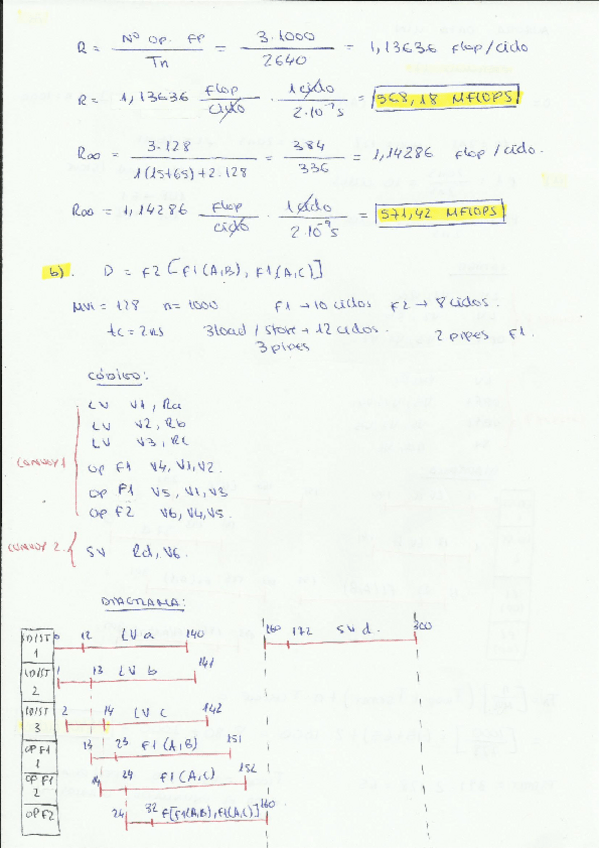 R = Nº OP. FP / Tn = 3·1000 / 2640 = 1,13636 Flop/ciclo
R = 1,13636 Flop/ciclo · 1 ciclo / 2·10⁻⁹s = 568,18 MFLOPS
R∞ = 3·128 / 1(15+65)+2·128 = 384 / 336 = 1,14286 Flop/ciclo.
R∞ = 1,14286 Flop/ciclo · 1 ciclo / 2·10⁻⁹s = 571,42 MFLOPS
b). D = F2[F1(A,B), F1(A,C)]
MVL = 128 n=1000 F1 → 10 ciclos F2 → 8 ciclos.
tc=2ns 3load/store → 12 ciclos. 2 pipes F1.
3 pipes
CÓDIGO:
LV V1, Ra
LV V2, Rb
LV V3, Rc
CONVOY 1
OP F1 V4, V1, V2.
OP F1 V5, V1, V3
OP F2 V6, V4, V5.
CONVOY 2.
SV Rd, V6.
DIAGRAMA:
LD/ST 1 0 12 LV a 140 160 172 SV d. 300
LD/ST 2 1 13 LV b 141
LD/ST 3 2 14 LV c 142
OP F1 1 13 23 F1(A,B) 151
OP F1 2 14 24 F1(A,C) 152
OP F2 24 32 F[F1(A,B), F1(A,C)] 160